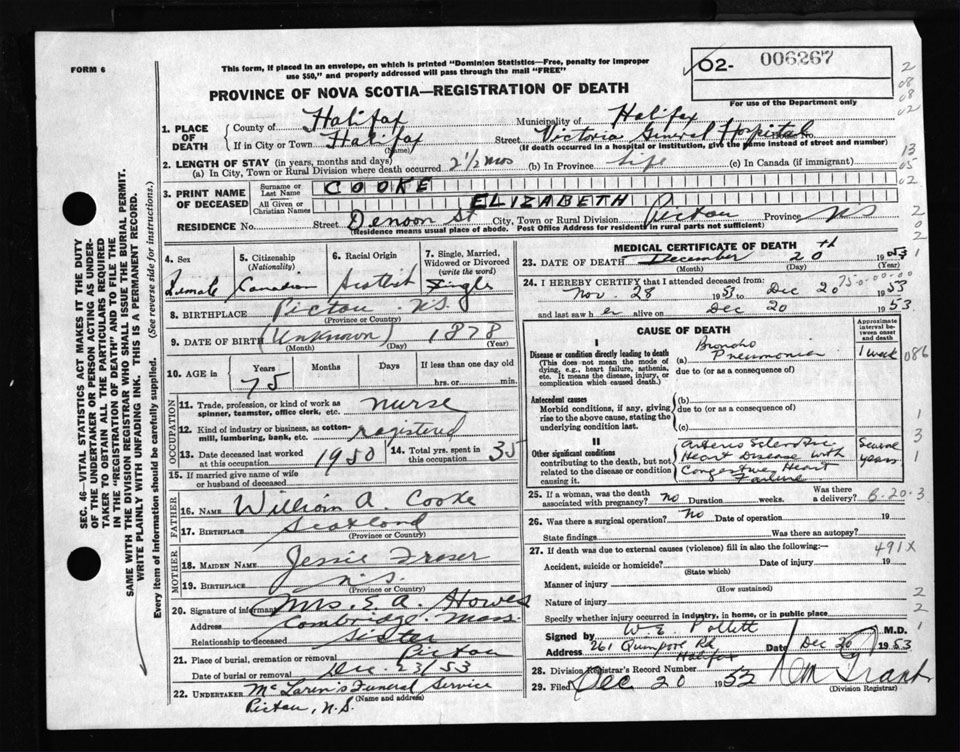 FORM 6
This form, if placed in an envelope, on which is printed "Dominion Statistics—Free, penalty for improper
use $50," and properly addressed will pass through the mail "FREE"
O2- 006267
For use of the Department only
PROVINCE OF NOVA SCOTIA—REGISTRATION OF DEATH
1. PLACE OF DEATH
County of Halifax Municipality of Halifax
If in City or Town Halifax Street Victoria General Hospital
(Name) (If death occurred in a hospital or institution, give the name instead of street and number)
2. LENGTH OF STAY (in years, months and days)
(a) In City, Town or Rural Division where death occurred 2 1/2 mos (b) In Province life (c) In Canada (if immigrant)
3. PRINT NAME OF DECEASED
Surname or Last Name COOKE
All Given or Christian Names ELIZABETH
RESIDENCE No. Street Denoon St City, Town or Rural Division Pictou Province NS
(Residence means usual place of abode. Post Office Address for residents in rural parts not sufficient)
4. Sex 5. Citizenship (Nationality) 6. Racial Origin 7. Single, Married, Widowed or Divorced (write the word)
Female Canadian Scottish Single
8. BIRTHPLACE Pictou NS
(Province or Country)
9. DATE OF BIRTH (Unknown) 1878
(Month) (Day) (Year)
10. AGE in Years Months Days If less than one day
75 hrs. or min.
OCCUPATION
11. Trade, profession, or kind of work as
spinner, teamster, office clerk, etc. Nurse
12. Kind of industry or business, as cotton-
mill, lumbering, bank, etc. registered
13. Date deceased last worked
at this occupation 1950
14. Total yrs. spent in
this occupation 35
15. If married give name of wife
or husband of deceased
FATHER
16. Name William A. Cooke
17. Birthplace Scotland
(Province or Country)
MOTHER
18. MAIDEN NAME Jessie Fraser
19. BIRTHPLACE N.S.
(Province or Country)
20. Signature of informant Mrs. E. A. Howes
Address Cambridge, Mass.
Relationship to deceased Sister
21. Place of burial, cremation or removal Pictou
Date of burial or removal Dec. 23/53
22. UNDERTAKER McLaren's Funeral Service
(Name and address)
Pictou, N.S.
MEDICAL CERTIFICATE OF DEATH
23. DATE OF DEATH December 20th 1953
(Month) (Day) (Year)
24. I HEREBY CERTIFY that I attended deceased from:
Nov. 28 1953 to Dec 20 1953
and last saw her alive on Dec 20 1953
CAUSE OF DEATH
Approximate interval between onset and death
I
Disease or condition directly leading to death
(This does not mean the mode of
dying, e.g., heart failure, asthenia,
etc. It means the disease, injury, or
complication which caused death.)
(a) Broncho Pneumonia 1 week
due to (or as a consequence of)
086
Antecedent causes
Morbid conditions, if any, giving
rise to the above cause, stating the
underlying condition last.
(b)
due to (or as a consequence of)
(c)
II
Other significant conditions
contributing to the death, but not
related to the disease or condition
causing it.
Arterio Sclerotic
Heart Disease with
Congestive Heart
Failure
years
25. If a woman, was the death
associated with pregnancy? no Duration weeks. Was there
a delivery?
26. Was there a surgical operation? No Date of operation 19
State findings Was there an autopsy?
27. If death was due to external causes (violence) fill in also the following:
491X
Accident, suicide or homicide? Date of injury 19
(State which)
Manner of injury
(How sustained)
Nature of injury
Specify whether injury occurred in industry, in home, or in public place
Signed by W. E. Pollett M.D.
Address 261 Quinpool Rd Halifax Date Dec 20 1953
28. Division Registrar's Record Number
29. Filed Dec 20 1953
(Division Registrar)
SEC. 46—VITAL STATISTICS ACT MAKES IT THE DUTY
OF THE UNDERTAKER OR PERSON ACTING AS UNDER-
TAKER TO OBTAIN ALL THE PARTICULARS REQUIRED
IN THE "REGISTRATION OF DEATH" AND TO FILE THE
SAME WITH THE DIVISION REGISTRAR WHO SHALL ISSUE THE BURIAL PERMIT.
WRITE PLAINLY WITH UNFADING INK. THIS IS A PERMANENT RECORD.
Every item of information should be carefully supplied. (See reverse side for instructions.)